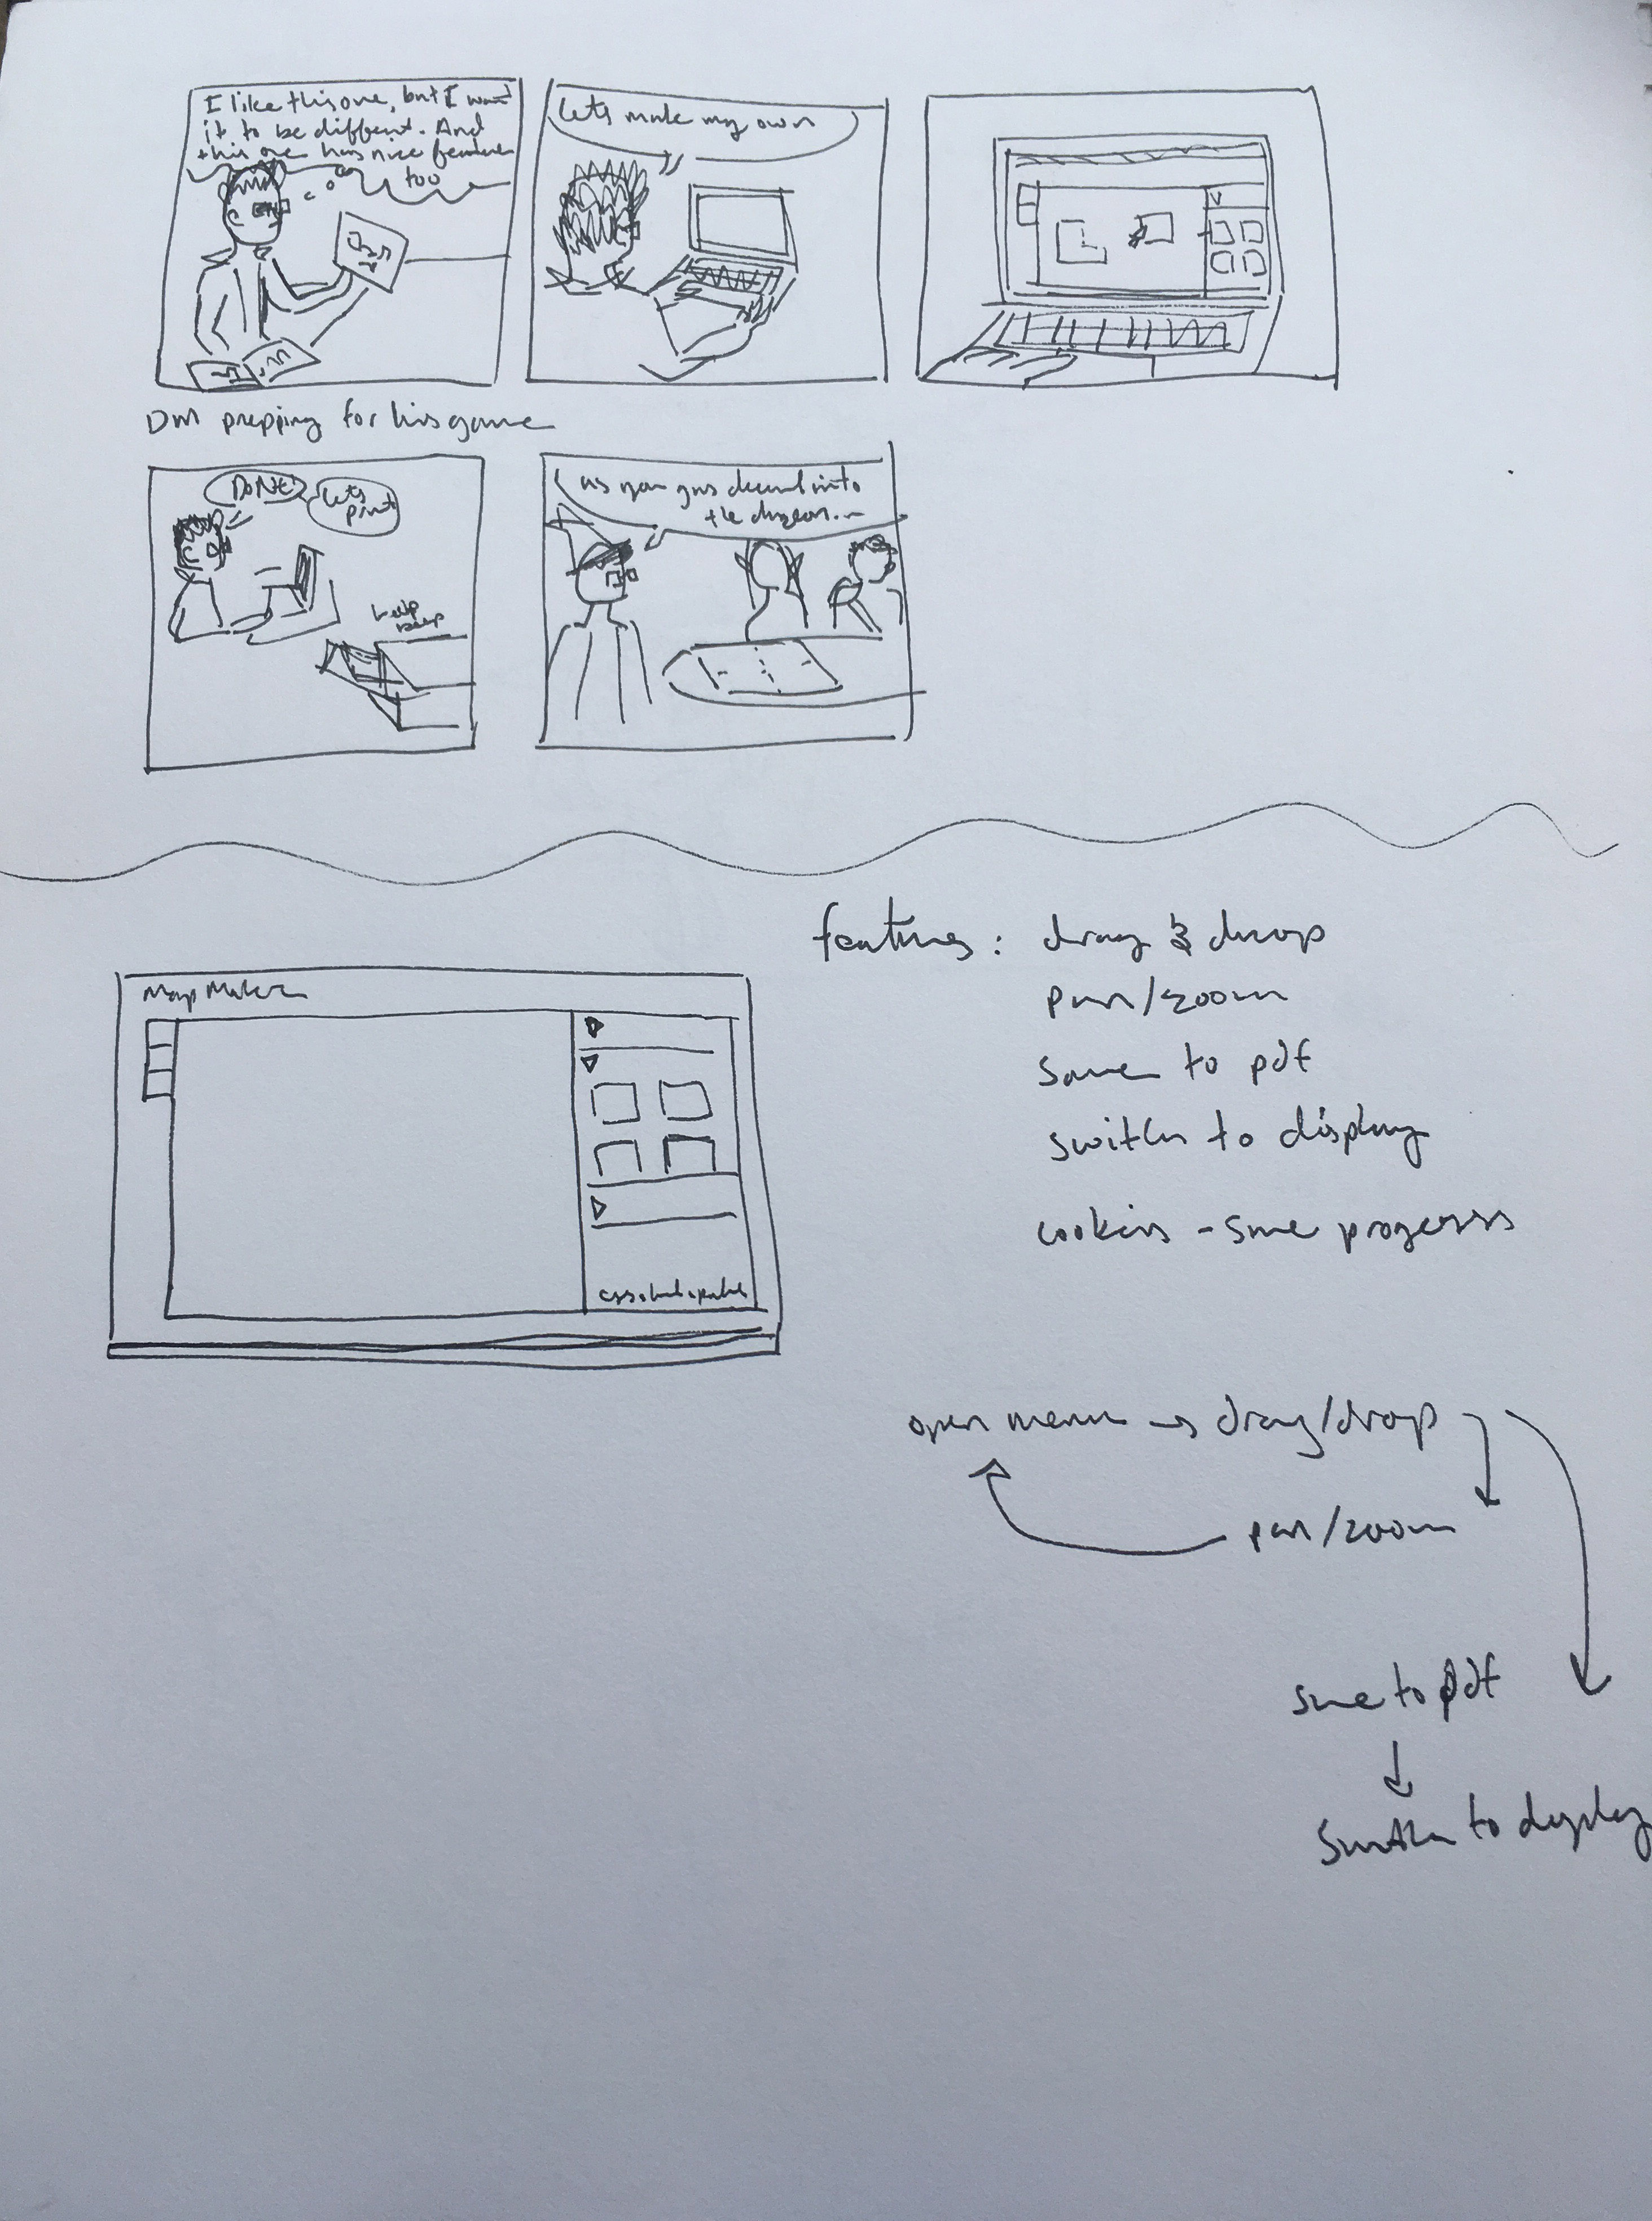 I like this one, but I want
it to be different. And
this one has nice features
too
Lets make my own
DM prepping for his game
DONE!
Lets
print
beep
beep
as you guys descend into
the dungeon...
features: drag & drop
pan/zoom
save to pdf
switch to display
cookies - save progress
Map Maker
open menu → drag/drop
pan/zoom
save to pdf
Switch to display